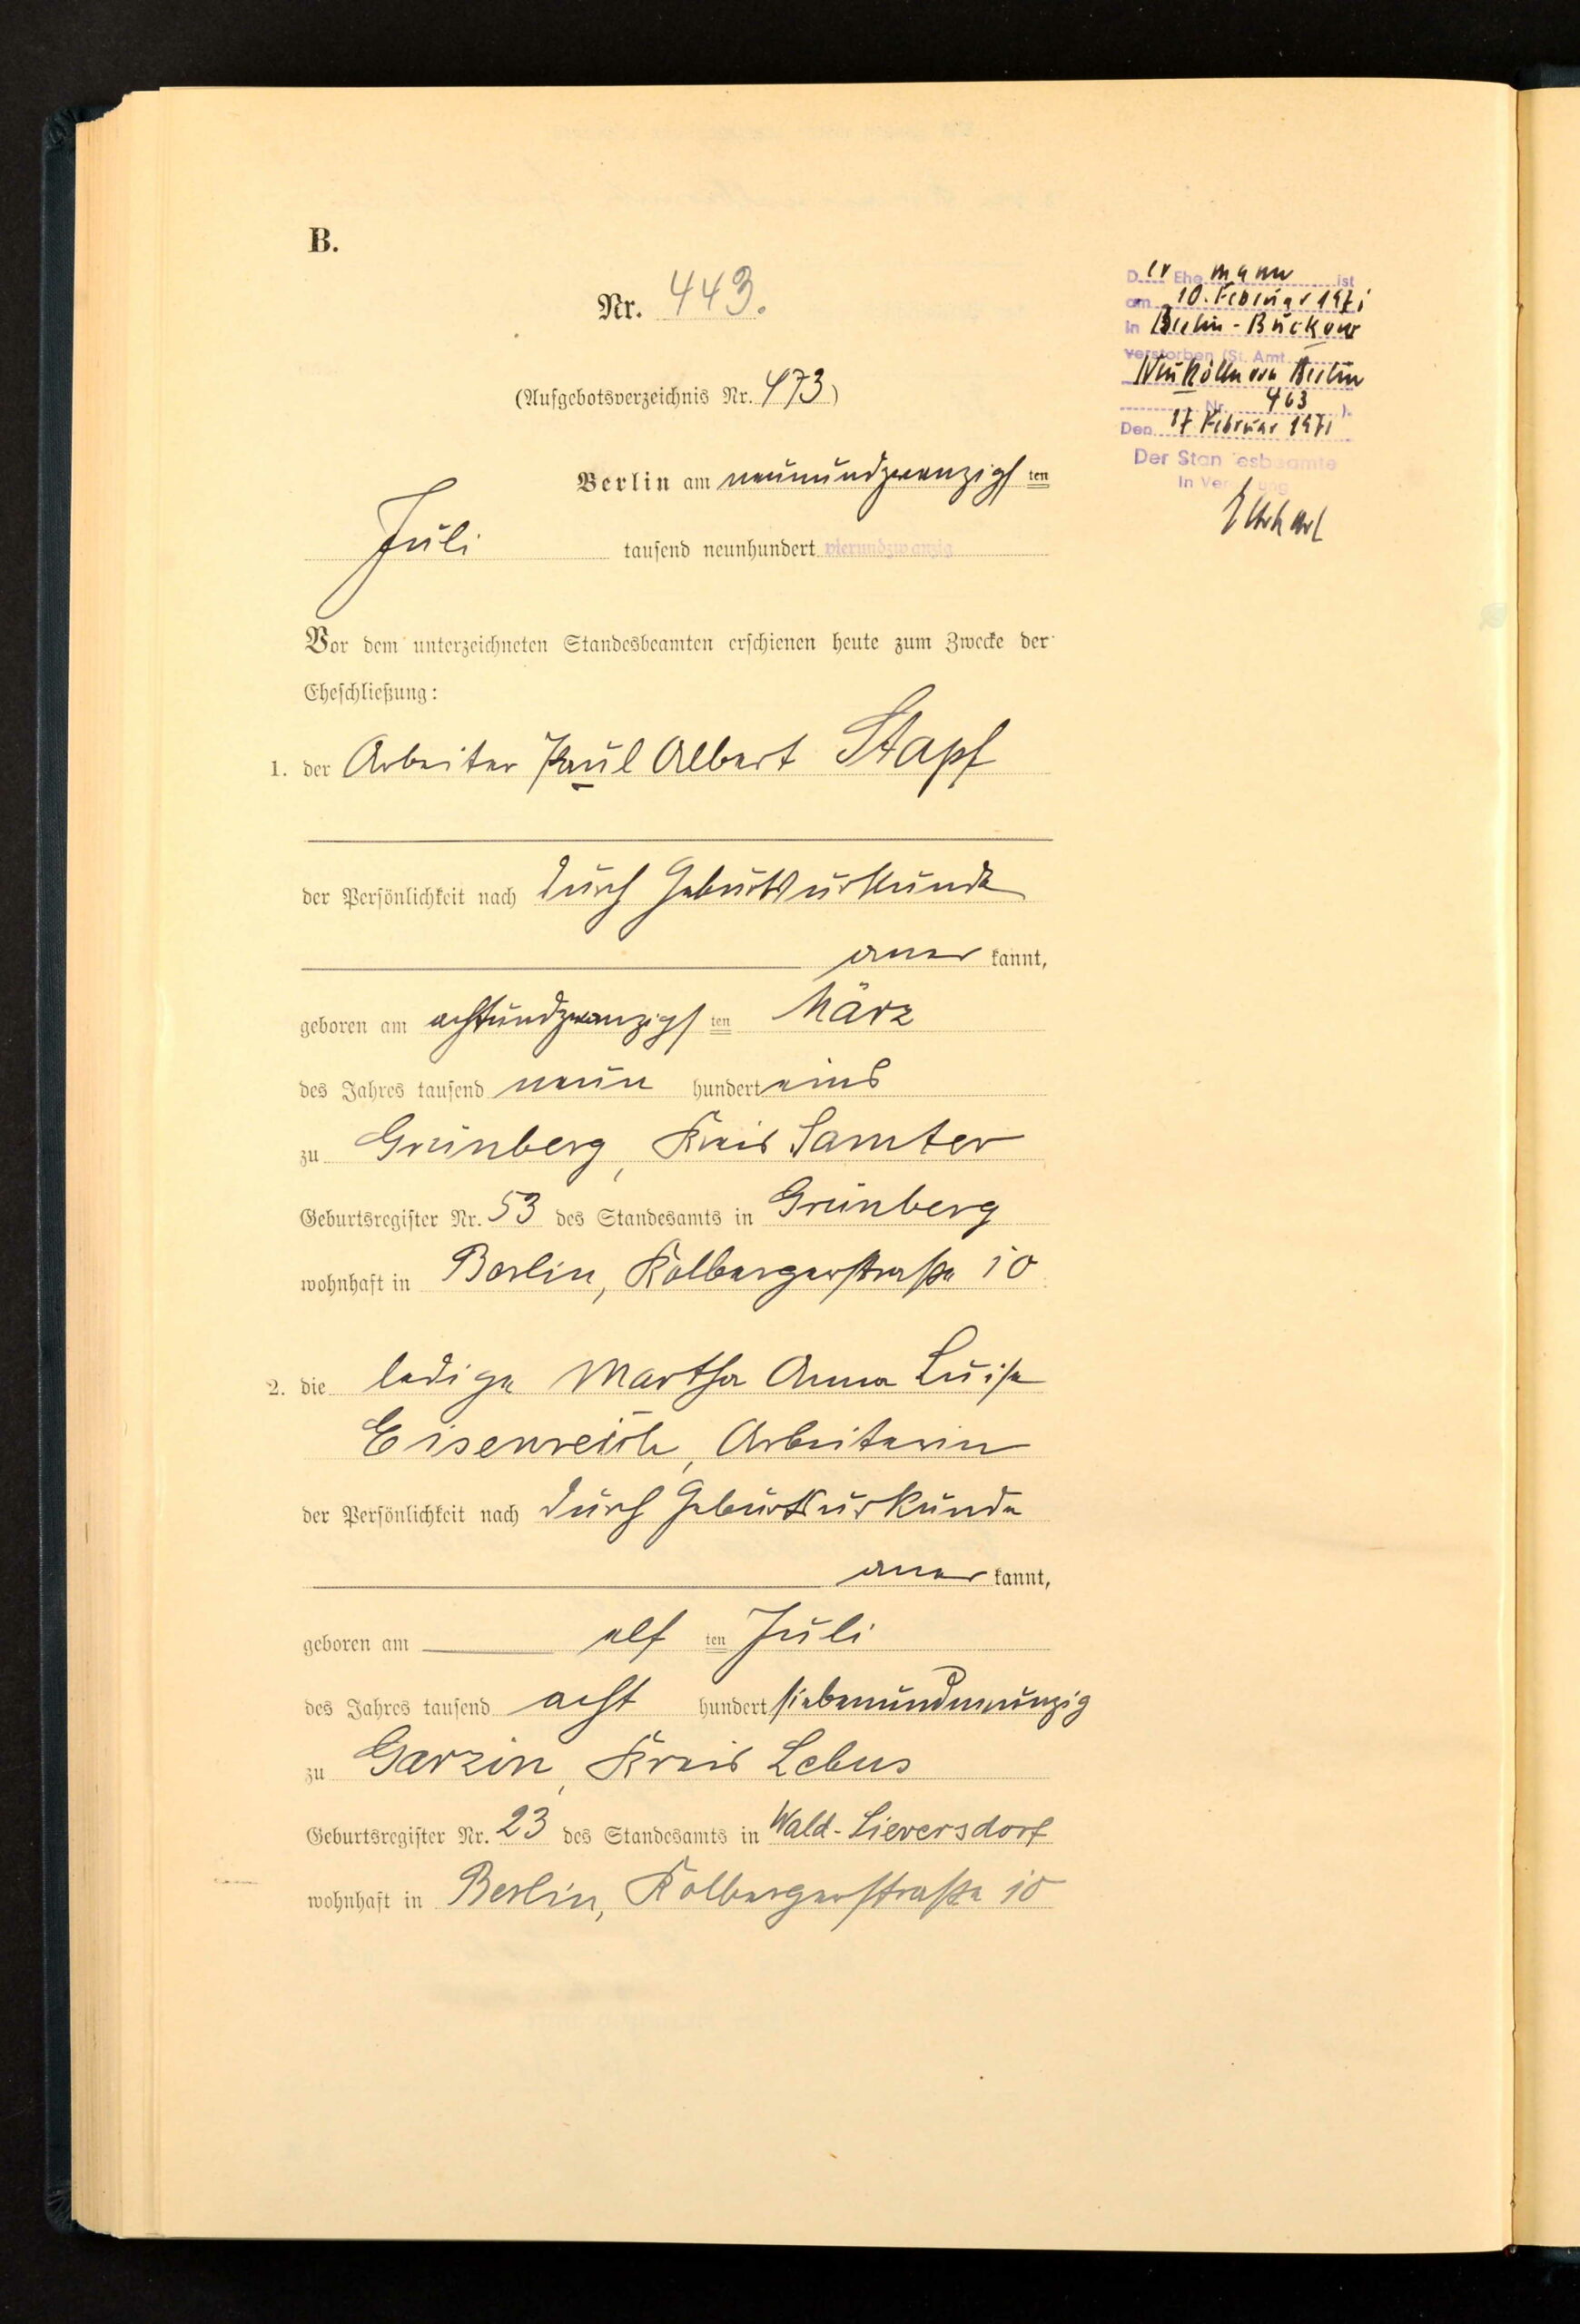 B.
Nr. 443.
(Aufgebotsverzeichnis Nr. 473)
Berlin am neunundzwanzigsten
Juli tausend neunhundert vierundzwanzig
Vor dem unterzeichneten Standesbeamten erschienen heute zum Zwecke der
Eheschließung:
1. der Arbeiter Paul Albert Stapf
der Persönlichkeit nach durch Geburtsurkunde
aner kannt,
geboren am achtundzwanzigsten März
des Jahres tausend neun hundert eins
zu Grünberg, Kreis Samter
Geburtsregister Nr. 53 des Standesamts in Grünberg
wohnhaft in Berlin, Kolbergerstraße 10
2. die ledige Martha Anna Luise
Eisenreich, Arbeiterin
der Persönlichkeit nach durch Geburtsurkunde
aner kannt,
geboren am elf ten Juli
des Jahres tausend acht hundert siebenundneunzig
zu Garzin, Kreis Lebus
Geburtsregister Nr. 23 des Standesamts in Wald-Sieversdorf
wohnhaft in Berlin, Kolbergerstraße 10
Der Ehemann ist
am 10. Februar 1971
in Berlin-Buckow
verstorben (St. Amt
Neukölln von Berlin
Nr. 463 ).
Den 17 Februar 1971
Der Standesbeamte
In Vertretung